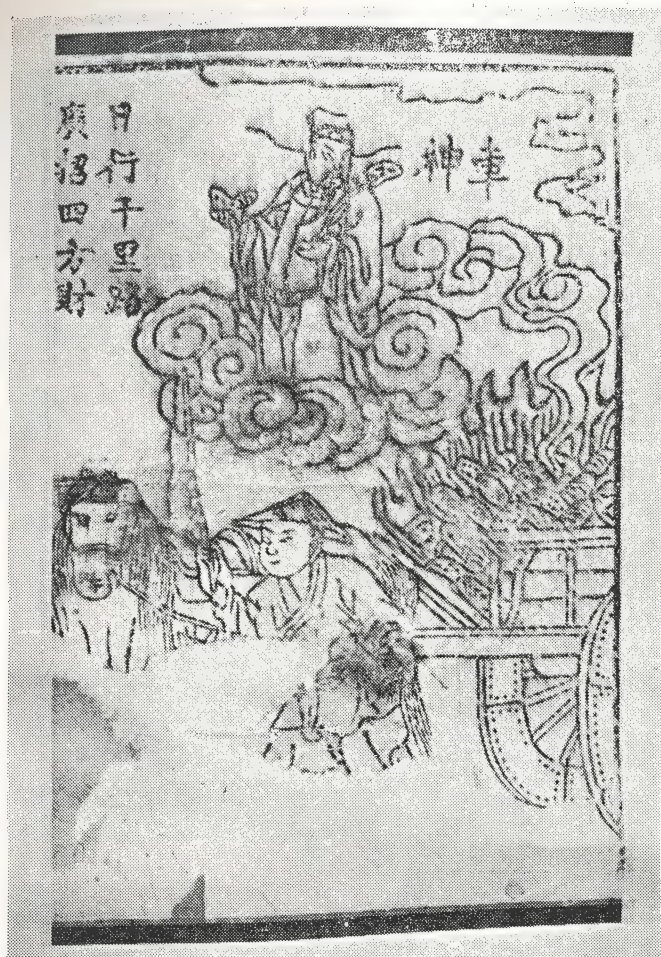 車神
日行千里路
廣招四方財